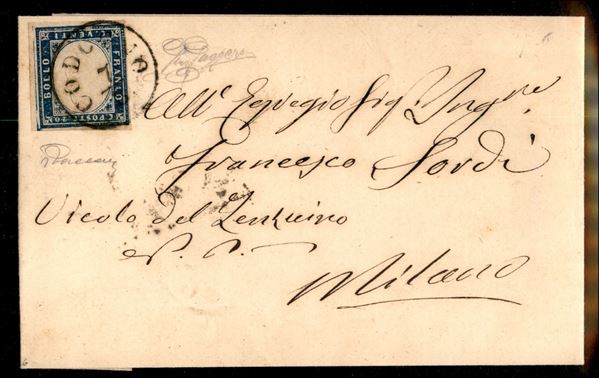 C. VENTI
BOLLO
FRANCO
C. POSTE 20
CODOGNO
All' Egregio Sig Ingre
Francesco Sordi
Vicolo del Zenzuino
N.
Milano